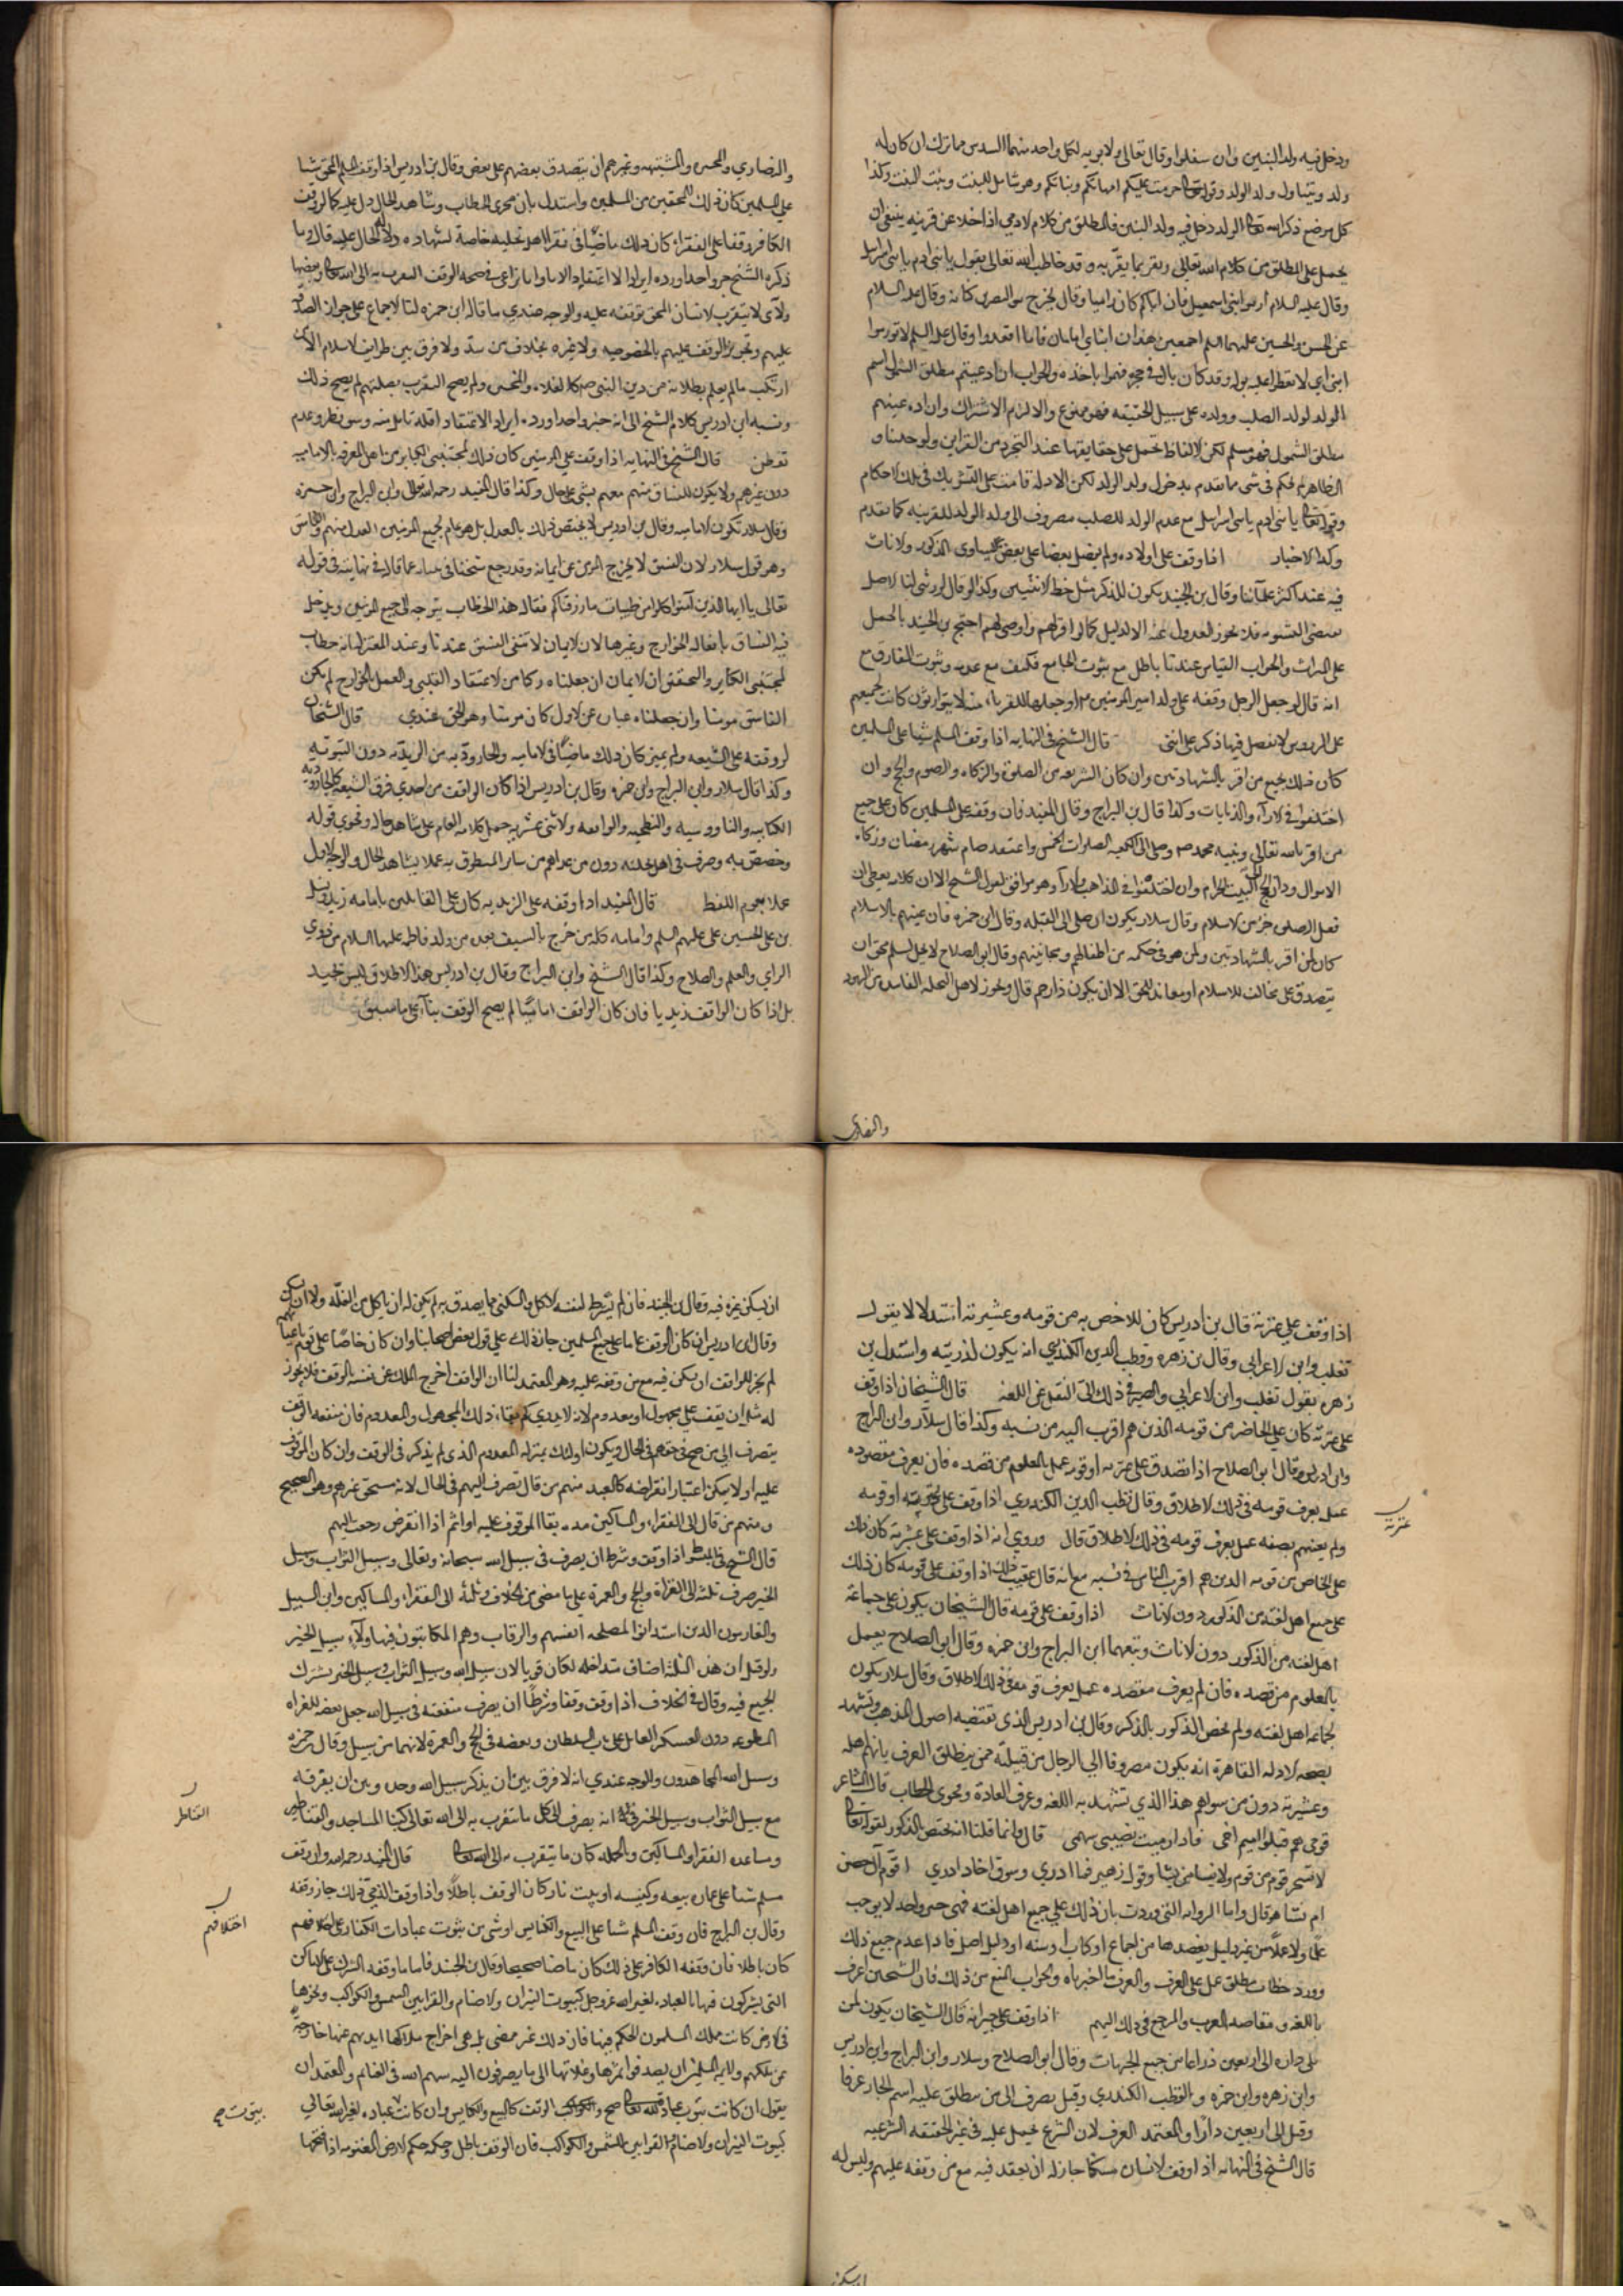 ودخل فيه ولد البنين وان سفلوا وقال تعالى ولابويه لكل واحد منهما السدس مما ترك ان كان له
ولد ويتناول ولد الولد وقوله تعالى حرمت عليكم امهاتكم وبناتكم وهو شامل للبنت وبنت البنت وكذا
كل موضع ذكر الله تعالى الولد دخل فيه ولد البنين فالمطلق من كلام الادمي اذا خلا عن قرينه ينبغي ان
يحمل على المطلق من كلام الله تعالى ويفسر بما يفسر به وقد خاطب الله تعالى بقول يا بني ادم يا بني اسرائيل
وقال عليه السلام ارموا بني اسمعيل فان اباكم كان راميا وقال
عن الحسن والحسين عليهما السلم اجمعين هذان ابناي امامان قاما او قعدا وقال عليه السلم لا تزرموا
ابني اي لا تقطعوا عليه بوله وقد كان بال في حجره فهموا باخذه والجواب ان ادعيتم مطلق الشمول اسم
الولد لولد الصلب وولده على سبيل الحقيقه فهو ممنوع والا لزم الاشتراك وان اردتم
مطلق الشمول فهو مسلم لكن الالفاظ تحمل على حقايقها عند التجرد من القراين ولو خلينا و
الظاهر لم نحكم في شي مما تقدم بدخول ولد الولد لكن الادلة قامت على التشريك في تلك الاحكام
وقوله تعالى يا بني ادم يا بني اسرائيل مع عدم الولد للصلب مصروف الى ولد الولد للقرينه كما تقدم
وكذا الاخبار اذا وقف على اولاده ولم يفضل بعضا على بعض تساوى الذكور والاناث
فيه عند اكثر علمآئنا وقال بن الجنيد يكون للذكر مثل حظ الانثيين وكذا لو قال لورثتي لنا الاصل
يقتضي التسويه فلا يجوز العدول عنه الا لدليل كما لو اقر لهم او اوصى لهم احتج بن الجنيد بالحمل
على الميراث والجواب القياس عندنا باطل مع ثبوت الجامع فكيف مع عدمه وثبوت الفارق مع
انه قال لو جعل الرجل وقفه على ولد امير المومنين
على الرووس لا تفصل فيها ذكر على انثى قال الشيخ في النهايه اذا وقف المسلم شيئا على المسلمين
كان ذلك لجميع من اقر بالشهادتين واركان الشريعه من الصلوة والزكاه والصوم والحج وان
اختلفوا في الآراء والديانات وكذا قال بن البراج وقال المفيد فان وقفه على المسلمين كان على جميع
من اقر بالله تعالى وبنبيه محمد ص وصلى الى الكعبه الصلوات الخمس واعتقد صيام شهر رمضان وزكاه
الاموال ودان بالحج الى البيت الحرام وان اختلفوا في المذاهب والآراء وهو موافق لقول الشيخ الا ان كلامه يعطي ان
فعل الصلوة جزء من الاسلام وقال سلار يكون لمن صلى الى القبله وقال ابن حمزه فان عينهم بالاسلام
كان لمن اقر بالشهادتين ولمن هو في حكمه من اطفالهم ومجانينهم وقال ابو الصلاح لا يحل لمسلم محق ان
يتصدق على مخالف للاسلام او معاند للحق الا ان يكون ذا رحم قال ويجوز لاهل النحله الفاسده من اليهود
والنصارى
والنصارى والمجوس والمشبهه وغيرهم ان يتصدق بعضهم على بعض وقال بن ادريس اذا وقف المسلم المحق شيئا
على المسلمين كان ذلك للمحقين من المسلمين واستدل بان فحوى الخطاب وشاهد الحال دل عليه كما لو وقف
الكافر وقفا على الفقراء كان ذلك ماضيا في فقراء اهل نحلته خاصة لشهاده دلالة الحال عليه قال وما
ذكره الشيخ خبر واحد اورده ايرادا لا اعتقادا
عليهم
ارتكب ما لم يعلم بطلانه من دين النبي ص كالغلاة والمجسم ولم يصح التقرب بصلتهم لم يصح ذلك
ونسبه ابن ادريس كلام الشيخ الى انه خبر واحد اورده ايرادا لا اعتقادا لقله تامل منه وسوء نظر وعدم
تفطن قال الشيخ في النهايه اذا وقف على المومنين كان ذلك لمجتنبي الكباير من اهل المعرفه بالامامه
دون غيرهم ولا يكون للفساق منهم معهم شيء على حال وكذا قال المفيد رحمه الله تعالى وابن البراج وابن حمزه
وقال سلار تكون للاماميه وقال بن ادريس لا يختص ذلك بالعدل بل هو عام لجميع المومنين العدل منهم والفاسق
وهو قول سلار لان الفسق لا يخرج المومن عن ايمانه وقد رجع شيخنا في تبيانه عما قاله في نهايته في قوله
تعالى يا ايها الذين آمنوا كلوا من طيبات ما رزقناكم فقال هذا الخطاب يتوجه الى جميع المومنين ويدخل
فيه الفساق بافعال الجوارح وغيرها لان الايمان لا ينفي الفسق عندنا وعند المعتزله انه خطاب
لمجتنبي الكباير والتحقيق ان الايمان ان جعلناه مركبا من الاعتقاد القلبي والعمل بالجوارح لم يكن
الفاسق مومنا وان جعلناه عباره عن الاول كان مومنا وهو الحق عندي قال الشيخان
لو وقفه على الشيعه ولم يميز كان ذلك ماضيا في الاماميه والجاروديه من الزيديه دون التبريه
وكذا قال سلار وابن البراج وابن حمزه وقال بن ادريس اذا كان الواقف من احدى فرق الشيعه كالجاروديه
الكيسانيه والناووسيه والفطحيه والواقفه والاثني عشريه حمل كلامه العام على شاهد حاله وفحوى قوله
وخصص به وصرف في اهل نحلته دون من عداهم من سائر المنطوق به عملا بشاهد الحال والوجه الاول
عملا بعموم اللفظ قال المفيد اذا وقفه على الزيديه كان على القائلين بامامه زيد
بن علي الحسين علي عليهم السلم وامامه كل من خرج بالسيف بعده من ولد فاطمه عليها السلام من ذوي
الراي والعلم والصلاح وكذا قال الشيخ وابن البراج وقال بن ادريس هذا الاطلاق ليس بجيد
بل اذا كان الواقف زيديا فان كان الواقف اماميا لم يصح الوقف بناآ على ما سبق
اذا وقف على عترته قال بن ادريس كان للاخص به من قومه وعشيرته استدلالا بقول
ثعلب وابن الاعرابي وقال بن زهره وقطب الدين الكندري انه يكون لذريته واستدل بن
زهره بقول ثعلب وابن الاعرابي والمصير في ذلك الى النقل عن اللغة قال الشيخان اذا وقف
على عترته كان على الخاصر من قومه الذين هم اقرب اليه من نسبه وكذا قال سلآر وابن البراج
وابن ادريس وقال ابو الصلاح اذا تصدق على عترته او قومه عمل بالمعلوم من قصده فان لم يعرف مقصوده
عمل بعرف قومه في ذلك الاطلاق وقال قطب الدين الكندري اذا وقف على عترته او قومه
عترته
ولم يعينهم بصفه عمل بعرف قومه في ذلك الاطلاق قال وروي انه اذا وقف على عشيرته كان ذلك
على الخاص من قومه الذين هم اقرب الناس في نسبه مع انه قال عقيب ذلك اذا وقف على قومه كان ذلك
على جميع اهل لغته من الذكور دون الاناث اذا وقف على قومه قال الشيخان يكون على جماعة
اهل لغته من الذكور دون الاناث وتبعهما ابن البراج وابن حمزه وقال ابو الصلاح يعمل
بالمعلوم من قصده فان لم يعرف مقصده عمل بعرف قومه في ذلك الاطلاق وقال سلار يكون
لجماعه اهل لغته ولم يخص الذكور بالذكر وقال بن ادريس الذي تقتضيه اصول المذهب وتشهد
بصحته الادله القاهرة انه يكون مصروفا الى الرجال من قبيلته ممن ينطلق العرف بانهم اهله
وعشيرته دون من سواهم هذا الذي تشهد به اللغه وعرف العادة وفحوى الخطاب قال الشاعر
قومي هم قتلوا اميم اخي فاذا رميت يصيبني سهمي قال وانما قلنا انه يختص الذكور لقوله تعالى
لا يسخر قوم من قوم ولا نساء من نساء وقول زهير فما ادري وسوف اخال ادري اقوم آل حصن
ام نساء قال واما الروايه التي وردت بان ذلك على جميع اهل لغته فهي خبر واحد لا يوجب
علما ولا عملا من غير دليل يعضدها من اجماع او كتاب او سنه او دليل اصل فاذا عدم جميع ذلك
وورد خطاب مطلق حمل على العرف والعرف ما اخبرناه والجواب المنع من ذلك فان الشيخين اعرف
باللغه ومقاصد العرب والمرجع في ذلك اليهم اذا وقف على جيرانه قال الشيخان يكون لمن
يلي داره الى اربعين ذراعا من جميع الجهات وقال ابو الصلاح وسلار وابن البراج وابن ادريس
وابن زهره وابن حمزه والقطب الكندري وقيل يصرف الى من يطلق عليه اسم الجار عرفا
وقيل الى اربعين دارا والمعتمد العرف لان الشرع يحمل عليه في غير الحقيقه الشرعيه
قال الشيخ في النهايه اذا وقف الانسان مسكنا جاز له ان يقعد فيه مع من وقفه عليهم وليس له
ان يسكن
ان يسكن غيره فيه وقال بن الجنيد فان لم يشترط لنفسه الاكل والسكنى فيما يصدق به لم يكن له ان ياكل من الغلة ولا ان يسكن
وقال ابن ادريس ان كان الوقف عاما على جميع المسلمين جاز ذلك على قول بعض اصحابنا وان كان خاصا على قوم باعيانهم
لم يجز للواقف ان يسكن فيه مع من وقفه عليه وهو المعتمد لنا ان الواقف اخرج الملك عن نفسه بالوقف فلا يجوز
يتصرف الى من صح في حقهم في الحال ويكون اولئك بمنزلة المعدوم الذي لم يذكر في الوقف وان كان الموقوف
عليه اولا يمكن اعتبار انقراضه كالعبد منهم من قال تصرف اليهم في الحال لانه مستحق غيرهم وهو الصحيح
ومنهم من قال الى الفقراء والمساكين مده بقا الموقوف عليه اولا ثم اذا انقرض رجعت اليهم
قال الشيخ في المبسوط اذا وقف وشرط ان يصرف في سبيل الله سبحانه وتعالى وسبيل الثواب وسبيل
الخير صرف ثلثه الى الغزاة والحج والعمرة على ما مضى من الخلاف وثلثه الى الفقراء والمساكين وابن السبيل
والغارمون الذين استدانوا لمصلحه انفسهم والرقاب وهم المكاتبون فهاولآء سبيل الخير
ولو قيل ان هذه الثلثة اصناف متداخله لكان قويا لان سبيل الله وسبيل الثواب وسبيل الخير يشترك
الجميع فيه وقال في الخلاف اذا وقف وقفا وشرط ان يصرف منفعته في سبيل الله جعل بعضه للغزاه
المطوعه دون العسكر العامل على باب السلطان وبعضه في الحج والعمرة لانهما من سبيل وقال بن حمزه
وسبيل الله المجاهدون والوجه عندي انه لا فرق بين ان يذكر سبيل الله وحده وبين ان يقرنه
مع سبيل الثواب وسبيل الخير في انه يصرف الى كل ما يتقرب به الى الله تعالى كبنا المساجد والقناطر
القناطر
ومساعده الفقراء والمساكين وبالجمله كان ما يتقرب به الى الله تعالى قال المفيد رحمه الله وان وقف
مسلم شيئا على عماره بيعه وكنيسه او بيت نار كان الوقف باطلا واذا وقف الذمي ذلك جاز وقفه
وقال بن البراج فان وقف المسلم شيئا على البيع والكنايس او شيء من بيوت عبادات الكفار على اختلافهم
اختلافهم
كان باطلا فان وقفه الكافر على ذلك كان ماضيا صحيحا وقال بن الجنيد فاما ما وقفه الشرك على الاماكن
التي يشركون فيها بالعباده لغير الله عز وجل كبيوت النيران والاصنام والقرابين للشمس والكواكب ونحوها
يقول ان كانت بيوت عبادة لله تعالى صح الوقف كالبيع والكنايس وان كانت عباده لغير الله تعالى
بيوت صح
كبيوت النيران والاصنام والقرابين للشمس والكواكب فان الوقف باطل وحكمه حكم الارض المغنومه اذا افتتحها